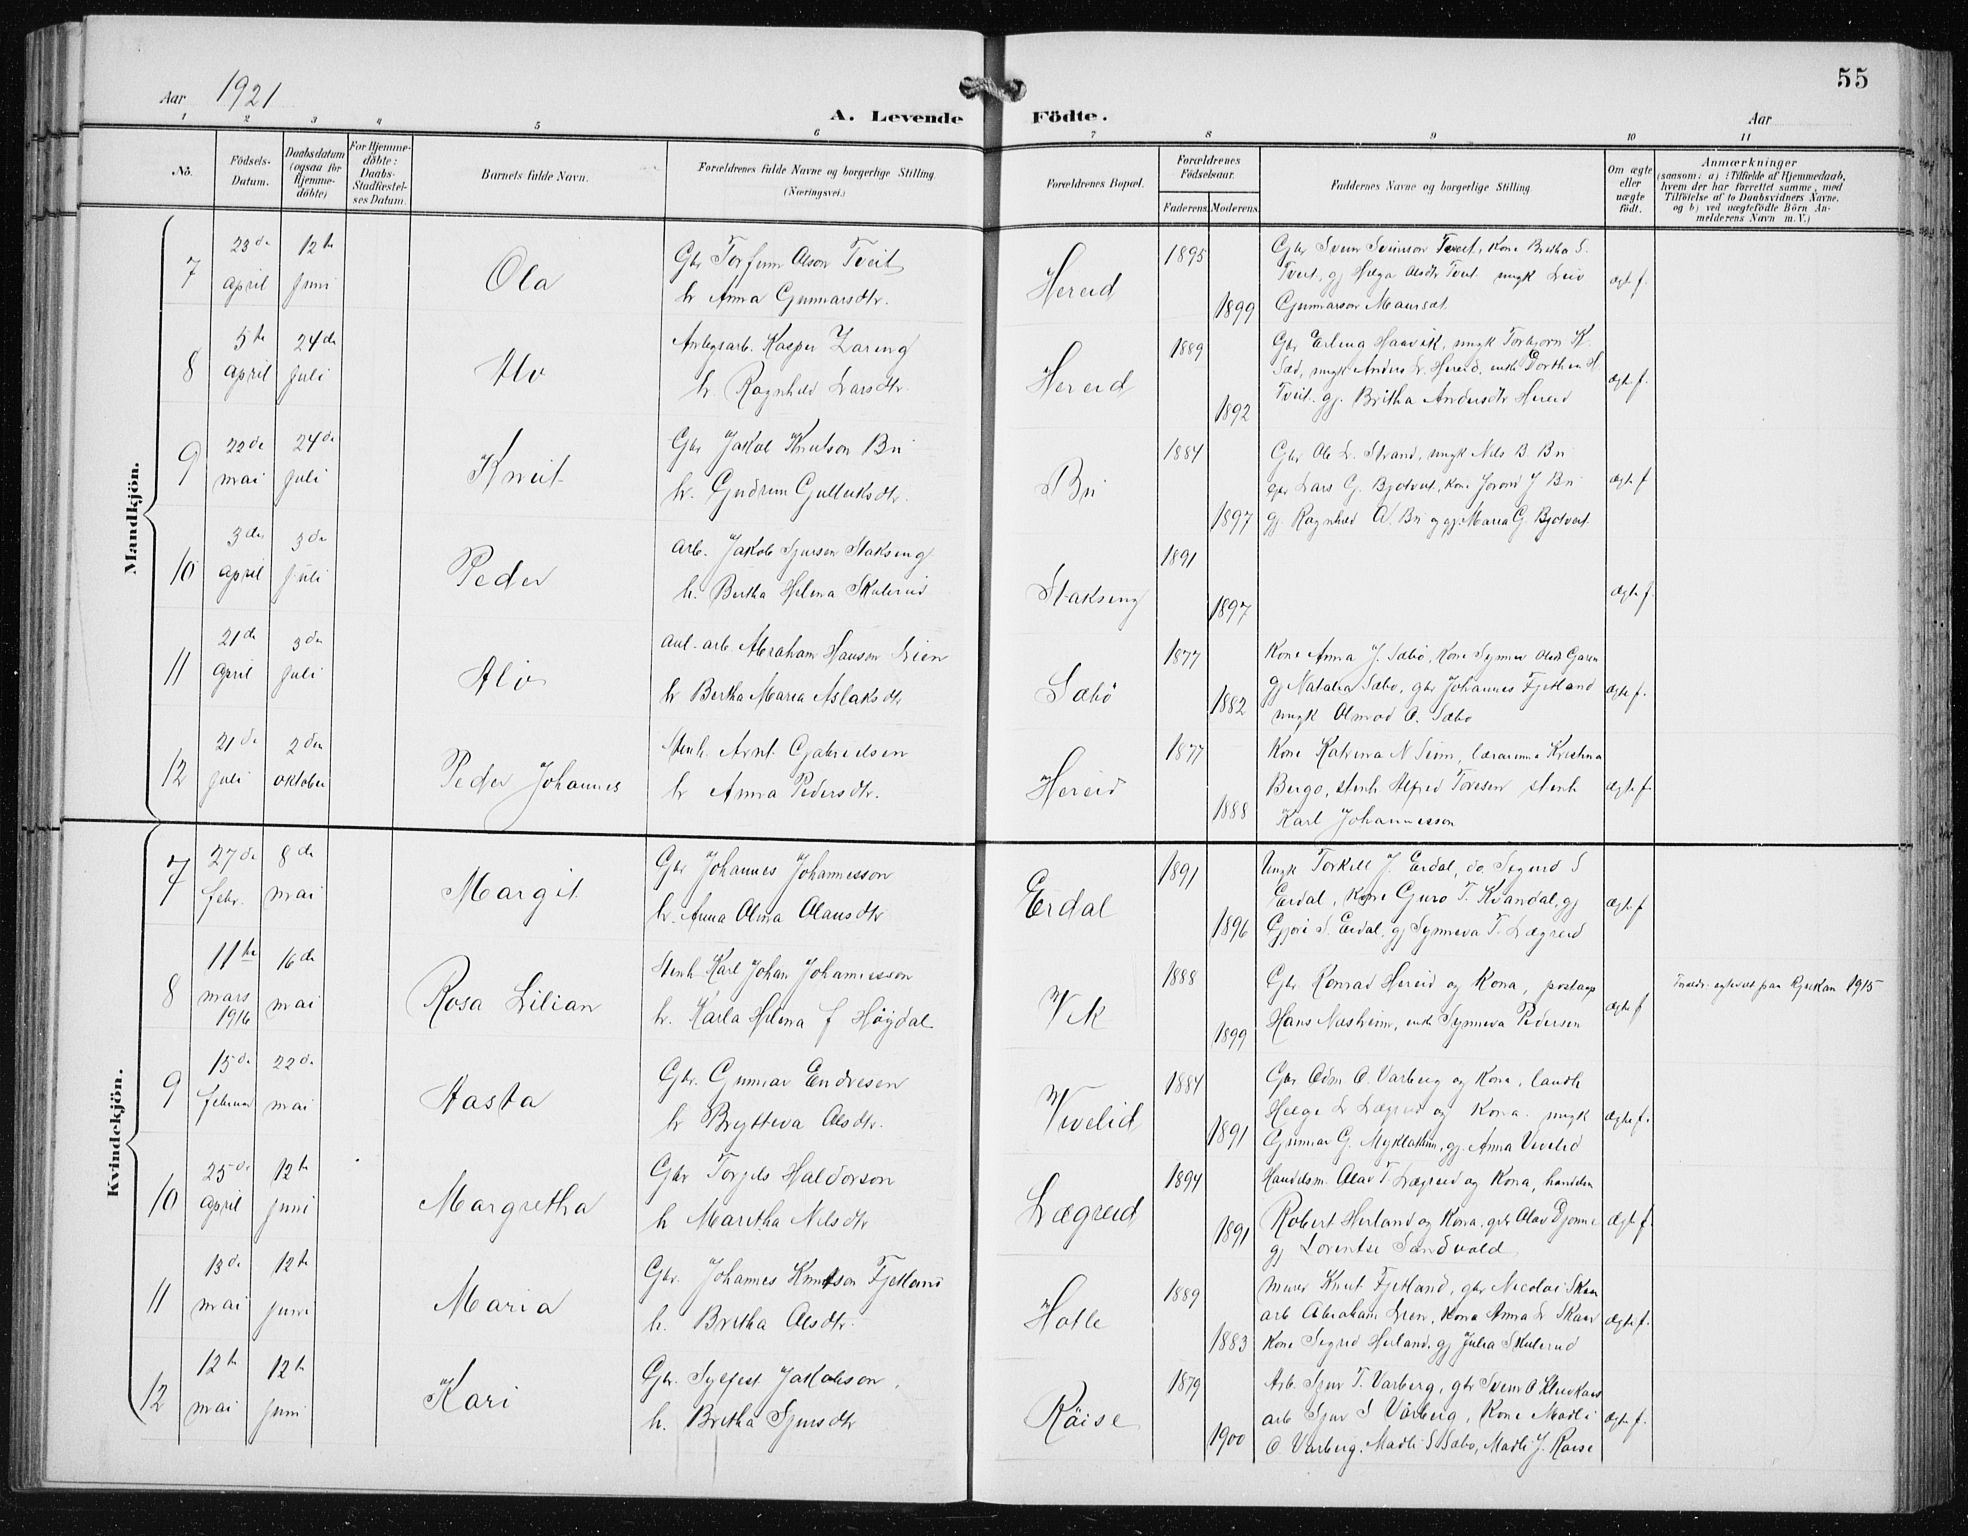 Aar 1921
A. Levende Födte.
Aar
55
1 2 3 4 5 6 7 8 9 10 11
No.
Födsels-
Datum.
Daabsdatum
(ogsaa for
Hjemme-
döbte)
For Hjemme-
döbte:
Daabs-
Stadfæstel-
ses Datum.
Barnets fulde Navn.
Forældrenes fulde Navne og borgerlige Stilling
(Næringsvei.)
Forældrenes Bopæl.
Forældrenes
Födselsaar.
Faderens. Moderens.
Faddernes Navne og borgerlige Stilling
Om ægte
eller
uægte
födt.
Anmærkninger
(saasom: a) i Tilfælde af Hjemmedaab,
hvem der har forrettet samme, med
Tilföielse af to Daabsvidners Navne,
og b) ved uægtefödte Börn An-
melderens Navn m. V.)
Mandkjön.
7 23de april 12te juni Ola
Gbr Torfinn Olson Tveit
h. Anna Gunnarsdtr.
Hereid 1895 1899
Gbr Svein Sveinson Tveit, Kone Britha S.
Tveit, gj Helga Olsdtr Tveit ungk Leiv
Gunnarson Maursæt
ægte f.
8 5te april 24de juli Alv
Anlegsarb. Kasper Zaring
h. Ragnhild Larsdtr.
Hereid 1889 1892
Gbr Erling Haavik, ungk Torbjorn K.
Sæd, ungk Anders L. Hereid, enke Dorthea H
Tveit. gj. Britha Andersdtr Hereid
ægte f.
9 22de mai 24de juli Knut
Gbr Jakob Knutson Bu
h. Gudrun Gulleiksdtr.
Bu 1884 1897
Gbr Ole L. Strand, ungk Nils B. Bu
gbr Lars G. Bjotveit, Kone Jorond J Bu
gj. Ragnhild A. Bu og gj. Maria G. Bjotveit
ægte f
10 3die april 3die juli Peder
Arb. Jakob Sjurson Stakseng
h. Bertha Helena Skulerud
Stakseng 1891 1897
ægte f.
11 21de april 3die juli Alv
anl. arb. Abraham Hanson Lien
h Bertha Maria Aslaksdtr
Sæbö 1877 1882
Kone Anna J. Sæbö, Kone Synneva Olsdtr Garen
gj Natalia Sæbo, gbr Johannes Fjetland
ungk Olmod O. Sæbo
ægte f.
12 21de juli 2den oktober Peder Johannes
Stenh. Arnt Gabrielsen
h Anna Pedersdtr.
Hereid 1877 1888
Kone Katrina N Seim, lærarinne Kristina
Bergo, stenh Alfred Toresen stenh
Karl Johannesson
ægte f.
Kvindekjön.
7 27de febr. 8de mai Margit
Gbr Johannes Johannesson
h. Anna Olina Olausdtr
Eirdal 1891 1896
Ungk Torkill J. Eirdal, do. Sigurd S
Eirdal, Kone Guro T. Kvandal, gj
Gjöri S. Eirdal, gj Synneva T. Lægreid
ægte f
8 11te mars 1916 16de mai Rosa Lilian
Stenh Karl Johan Johannesson
h. Karla Helena f Höydal
Vik 1888 1899
Gbr Konrad Hereid og Kona, postasp
Hans Næsheim, enke Synneva Pedersen
ægte f
Foreldr. egteviet paa Rjukan 1915
9 15de februar 22de mai Aasta
Gbr. Gunnar Endresen
h Brytteva Olsdtr.
Vivelid 1884 1891
Gbr Odm. O. Varberg og Kona, landh
Helge L Lægreid og Kona. ungk
Gunnar G. Myklatun, gj. Anna Vivelid
ægte f.
10 25de april 12te juni Margretha
Gbr Torgils Haldorson
h Maritha Nilsdtr
Lægreid 1894 1891
Handelsm. Olav T. Lægreid og Kona, handelsm
Robert Herland og Kona, gbr Olav Djonne
gj Lorentse Sandvold
ægte f.
11 13de mai 12te juni Maria
Gbr. Johannes Knutson Fjetland
h. Britha Olsdtr.
Holle 1889 1883
Murer Knut Fjetland, gbr Nicolai Skaar
arb Abraham Lien, Kona Anna L Skaar
Kone Sigrid Herland, gj Julia Skulerud
ægte f.
12 12te mai 12te juni Kari
Gbr. Sylfest Jakobson,
h. Britha Sjursdtr
Räise 1879 1900
Arb. Sjur T. Varberg, gbr Svein O
arb Sjur S Vårberg, Kone Madli
O Varberg. Madli S Sæbo, Madli J. Raise
ægte f.